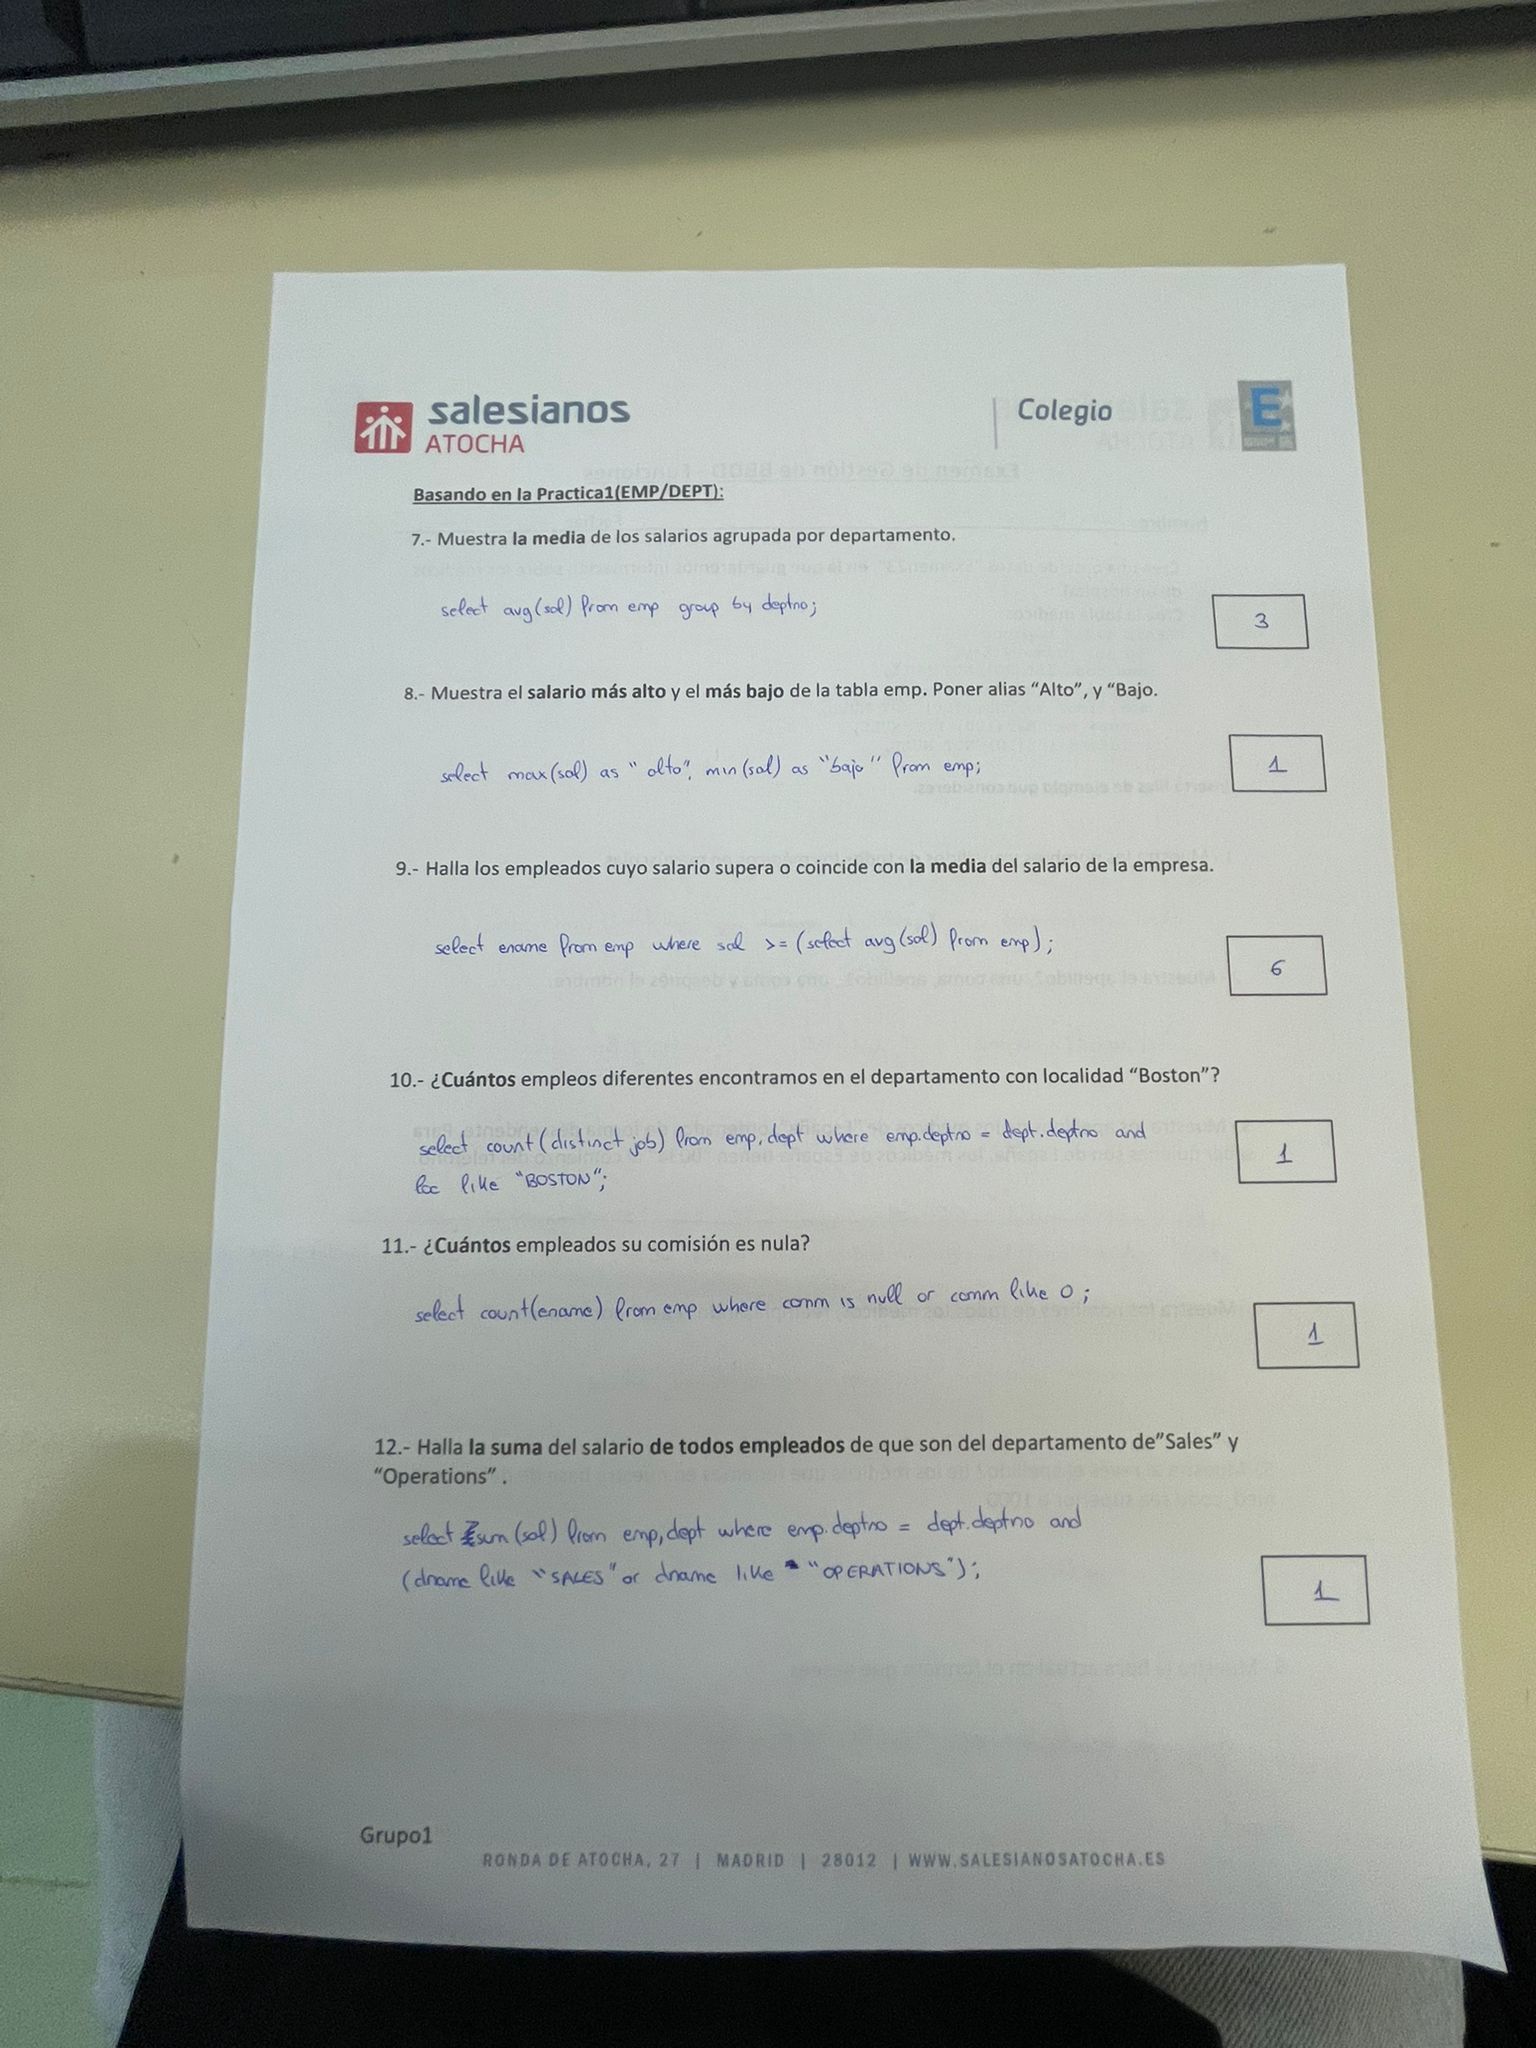 salesianos
ATOCHA
Colegio
E
Basando en la Practica1(EMP/DEPT):
7.- Muestra la media de los salarios agrupada por departamento.
select avg(sal) from emp group by deptno;
3
8.- Muestra el salario más alto y el más bajo de la tabla emp. Poner alias “Alto”, y “Bajo.
select max(sal) as "alto", min(sal) as "bajo" from emp;
1
9.- Halla los empleados cuyo salario supera o coincide con la media del salario de la empresa.
select ename from emp where sal >= (select avg(sal) from emp);
6
10.- ¿Cuántos empleos diferentes encontramos en el departamento con localidad “Boston”?
select count(distinct job) from emp, dept where emp.deptno = dept.deptno and
loc like "BOSTON";
1
11.- ¿Cuántos empleados su comisión es nula?
select count(ename) from emp where comm is null or comm like 0;
1
12.- Halla la suma del salario de todos empleados de que son del departamento de”Sales” y
“Operations” .
select sum(sal) from emp, dept where emp.deptno = dept.deptno and
(dname like "SALES" or dname like "OPERATIONS");
1
Grupo1
RONDA DE ATOCHA, 27 | MADRID | 28012 | WWW.SALESIANOSATOCHA.ES